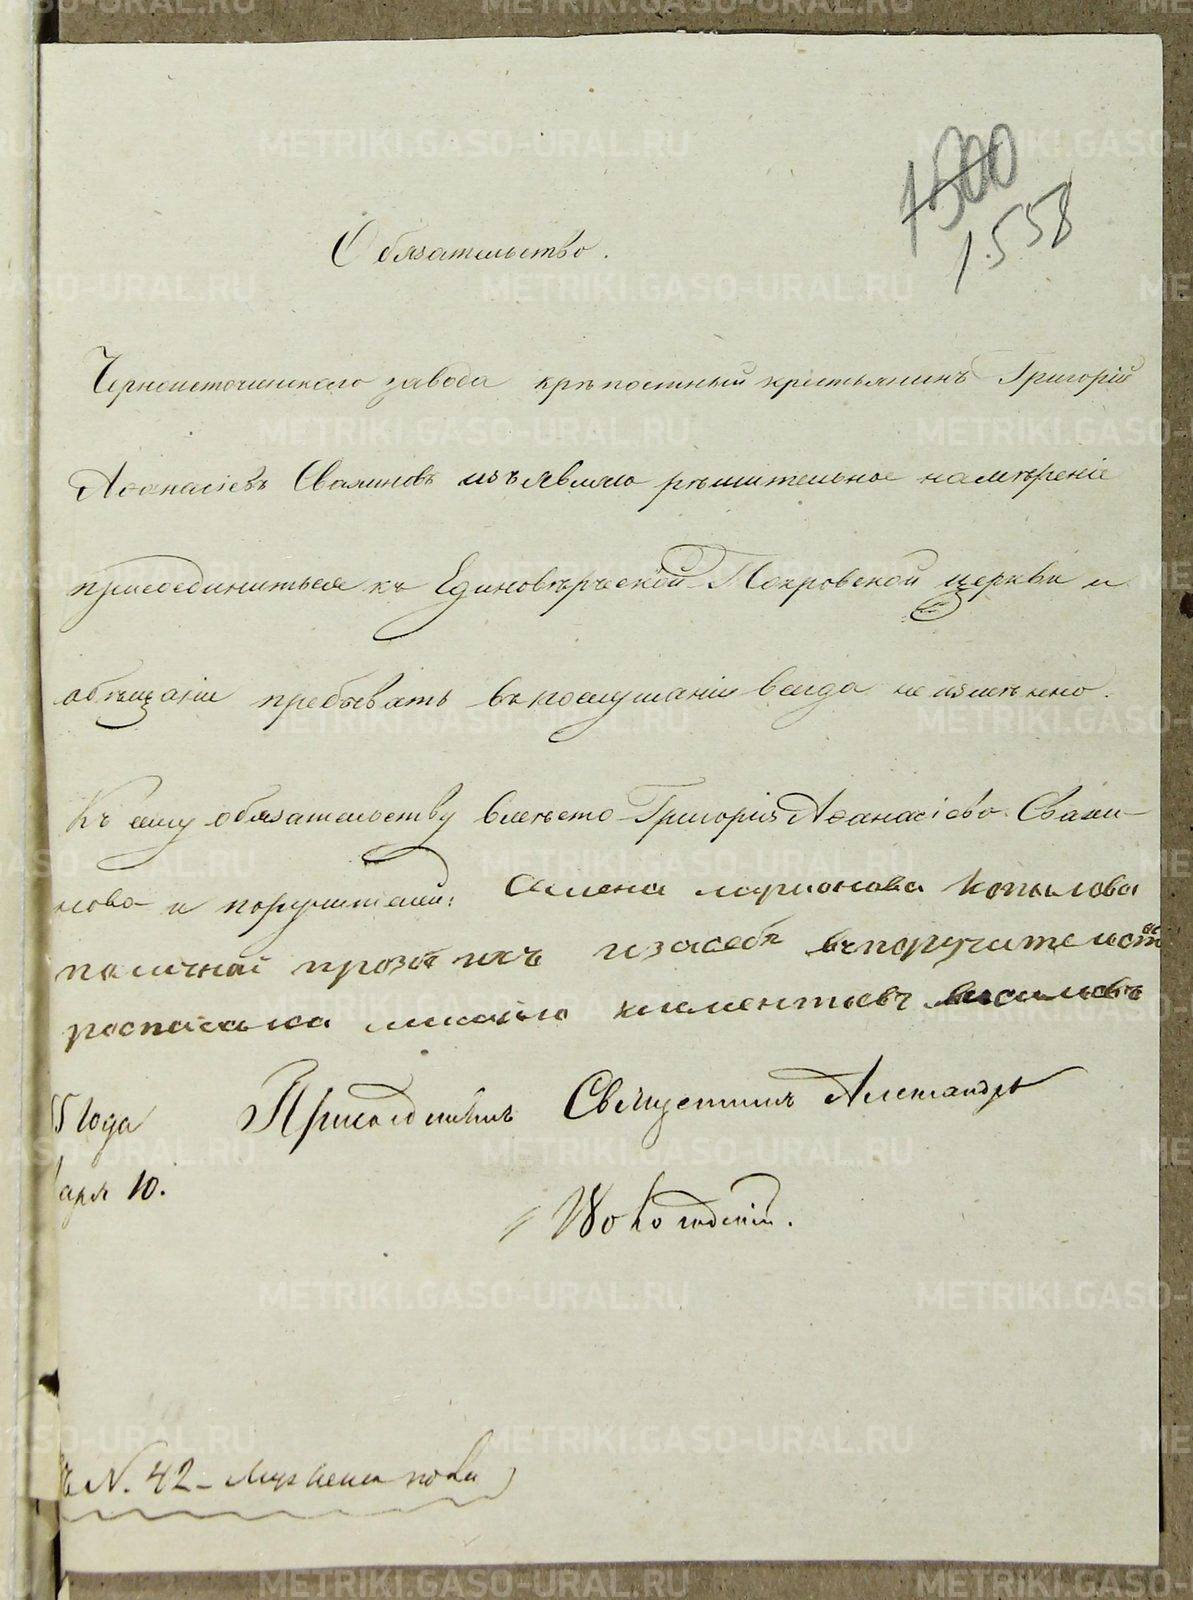 1500
1.558
Обязательство.
Черноисточинскаго завода крѣпостный крестьянинъ Григорій
Аѳанасіевъ Свалиновъ изъявляю рѣшительное намѣреніе
присоединиться къ Единовѣрческой Покровской церкви и
обѣщаніи пребывать въ послушаніи всегда неизмѣнно.
Къ сему обязательству вмѣсто Григорія Аѳанасіева Свали-
нова и поручителей: Семена ларионова Копылова
поличной прозбѣ ихъ изасебя въпоручителст
росписался клементьевъ
55 Года Присоединилъ Священникъ Александръ
варя 10.
N. 42 -
METRIKI.GASO-URAL.RU